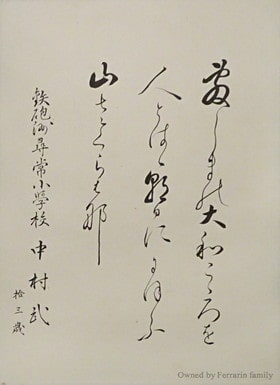 敷しまの大和こゝろを
人とはゝ朝日尓にほふ
山さくら者那
鉄砲洲尋常小學校 中村武
拾三歳
Owned by Ferrarin family